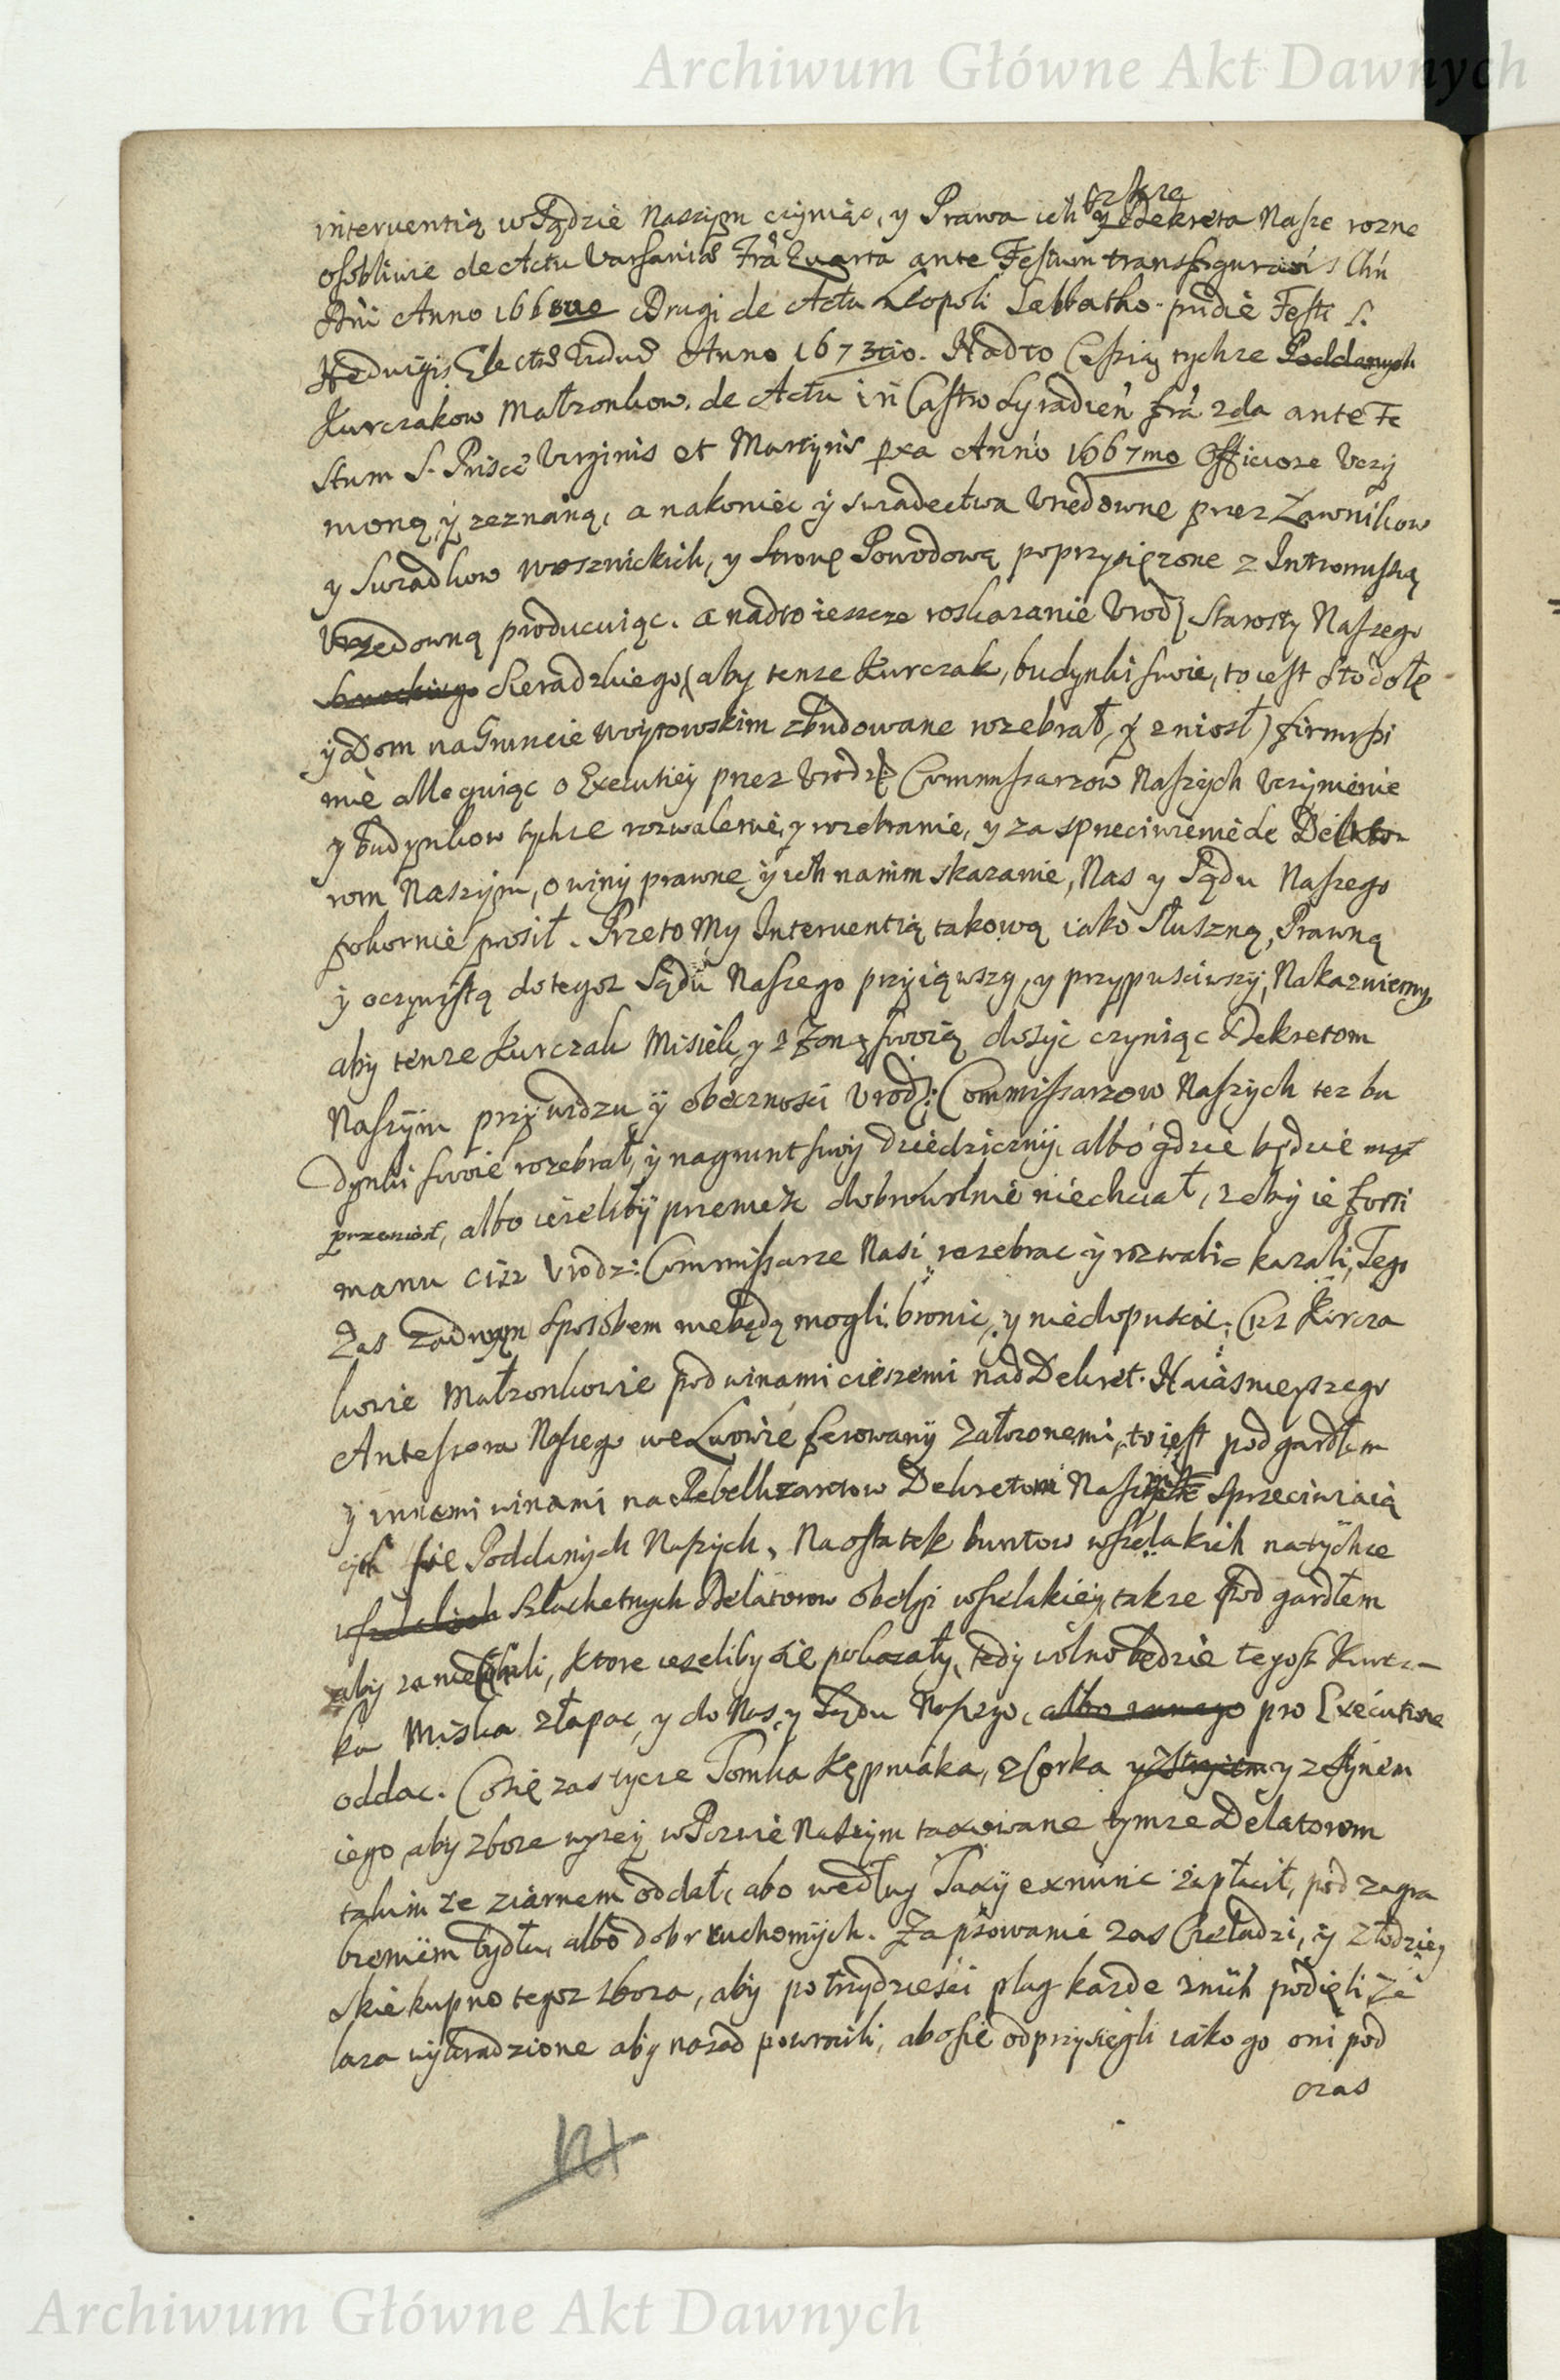 Archiwum Główne Akt Dawnych
interventią w Sądzie Naszym czyniąc, y Prawa ich tz kże
y Dekreta Nasze rozne
osobliwie de Actu Varsaniæ Fra Quarta ante Festum transfiguraõis Chri
Dni Anno 166 Drugi de Actu Leopoli Sabbatho pridie Festi S.
Hedvigis Electæ Viduæ Anno 1673tio. Nadto Cessią tychze Poddanych
Kurczakow Małzonkow. de Actu in Castro Syradien fra 2da ante Fe
stum S. Priscæ Virginis et Martyris pxa Anno 1667mo Officiose Vczy
nioną y zeznaną, a nakoniec y swiadectwa Vrzedowne przez Ławnikow
y Swiadkow woznickich, y Stronę Powodową poprzysięzone z Intromissią
Vrzedowną producuiąc. a nadto ieszcze roskazanie Vrodz Starosty Naszego
Sieradzkiego (aby tenze Kurczak, budynki swoie, to iest Stodołę
y Dom na Gruncie woytowskim zbudowane rozebrał, y zniosł) firmissi
me alleguiąc o Executiey przez Vrodz: Commissarzow Naszych Vczynienie
y budynkow tychze rozwalenie, y rozebranie, y za sprzeciwienie de Dekre
tom Naszym, o winy prawne y ich na nim skazanie, Nas y Sądu Naszego
pokornie prosił. Przeto My Interventią takową iako Słuszną, Prawną
y oczywistą do tegoz Sądu Naszego przyiąwszy, y przypusciwszy, Nakazuiemy,
aby tenze Kurczak Misiek y z Zoną swoią dosyc czyniąc Dekretom
Naszym przy widzu y obecznosci Vrodz: Commissarzow Naszych tez bu
dynki swoie rozebrał, y na grunt swoy dziedziczny, albo gdzie będzie mogł
przeniosł, albo iezeliby przenieść dobrowolnie niechciał, zeby ie forti
manu ciz Vrodz: Commissarze Nasi rozebrac y rozwalic kazali, Tego
Zas zadnym Sposobem niebędą mogli bronic, y niedopuscic Ciz Kurcza
kowie Małzonkowie pod winami cięszemi nad Dekret Naiasnieyszego
Antessora Naszego we Lwowie ferowany Załozonemi, to iest pod gardłem
y innemi winami na Rebellizantow Dekretom Naszym Sprzeciwiaią
cych sie Poddanych Naszych, Naostatek buntow wszelakich na tychze
Szlachetnych Delatorow obelgi wszelakiey, takze pod gardłem
aby zaniechali, ktore iezeliby sie pokazały, tedy wolno będzie tegosz Kurcza-
ka Miska złapac, y do Nas y Sądu Naszego, albo pro Executione
oddac. Co się zas tycze Tomka Kępniaka, z Corka y z Synem
iego, aby zboze wyzey w Pozwie Naszym taxowane tymze Delatorom
takim ze ziarnem oddał, abo według Taxy exnunc zapłacił, pod zagra
bieniem bydła, albo dobr ruchomych. Za psowanie zas Czeladzi, y złodziey
skie kupno tegoz zboza, aby potrzydziesci plag kazde z nich podięli, Ze
laza wykradzione aby nazad powrocili, abo sie odprzysięgli iako go oni pod
oras
121
Archiwum Główne Akt Dawnych